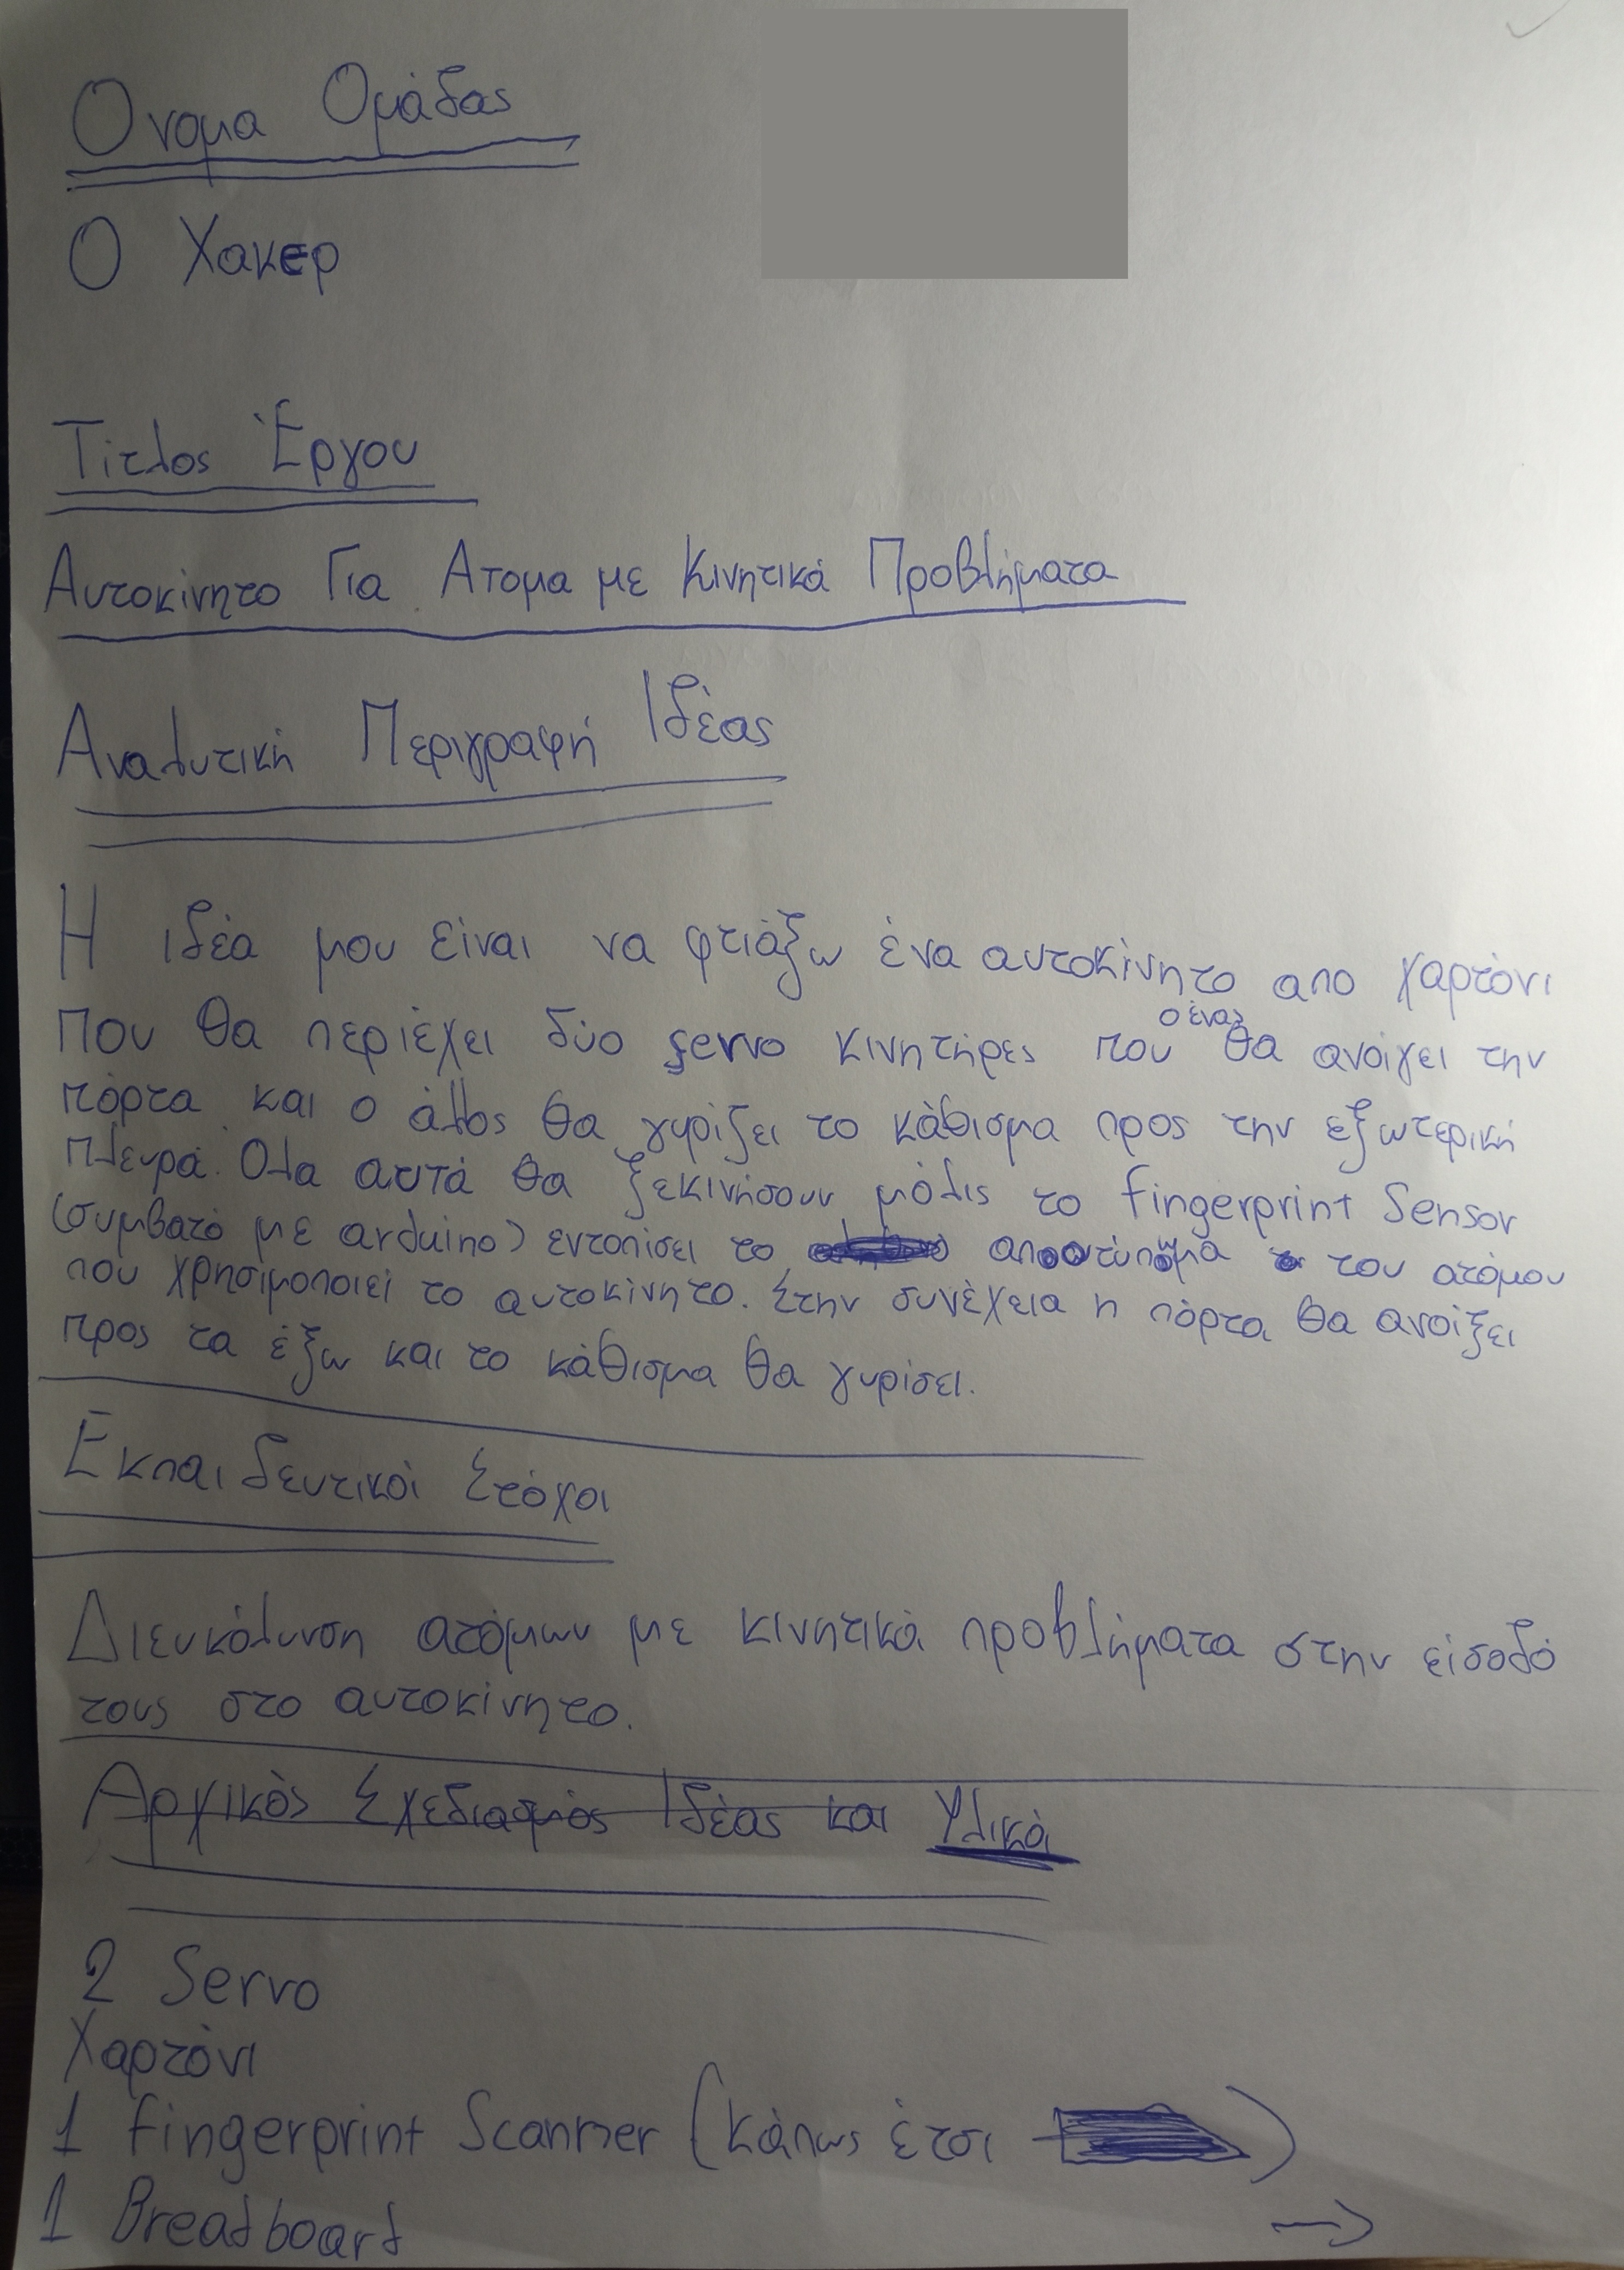 Ονομα Ομάδας
Ο Χακερ
Τίτλος Έργου
Αυτοκίνητο Για Ατομα με Κινητικά Προβλήματα
Αναλυτική Περιγραφή Ιδέας
Η ιδέα μου είναι να φτιάξω ένα αυτοκίνητο απο χαρτόνι
που θα περιέχει δύο servo κινητήρες που ο ένας θα ανοίγει την
πόρτα και ο άλλος θα γυρίζει το κάθισμα προς την εξωτερική
πλευρά. Ολα αυτά θα ξεκινήσουν μόλις το fingerprint Sensor
(συμβατό με arduino) εντοπίσει το αποτύπωμα του ατόμου
που χρησιμοποιεί το αυτοκίνητο. Στην συνέχεια η πόρτα θα ανοίξει
προς τα έξω και το κάθισμα θα γυρίσει.
Εκπαιδευτικοί Στόχοι
Διευκόλυνση ατόμων με κινητικά προβλήματα στην είσοδό
τους στο αυτοκίνητο.
Αρχικός Σχεδιασμός Ιδέας και Υλικά
2 Servo
Χαρτόνι
1 fingerprint Scanner (κάπως έτσι )
1 Breadboard →